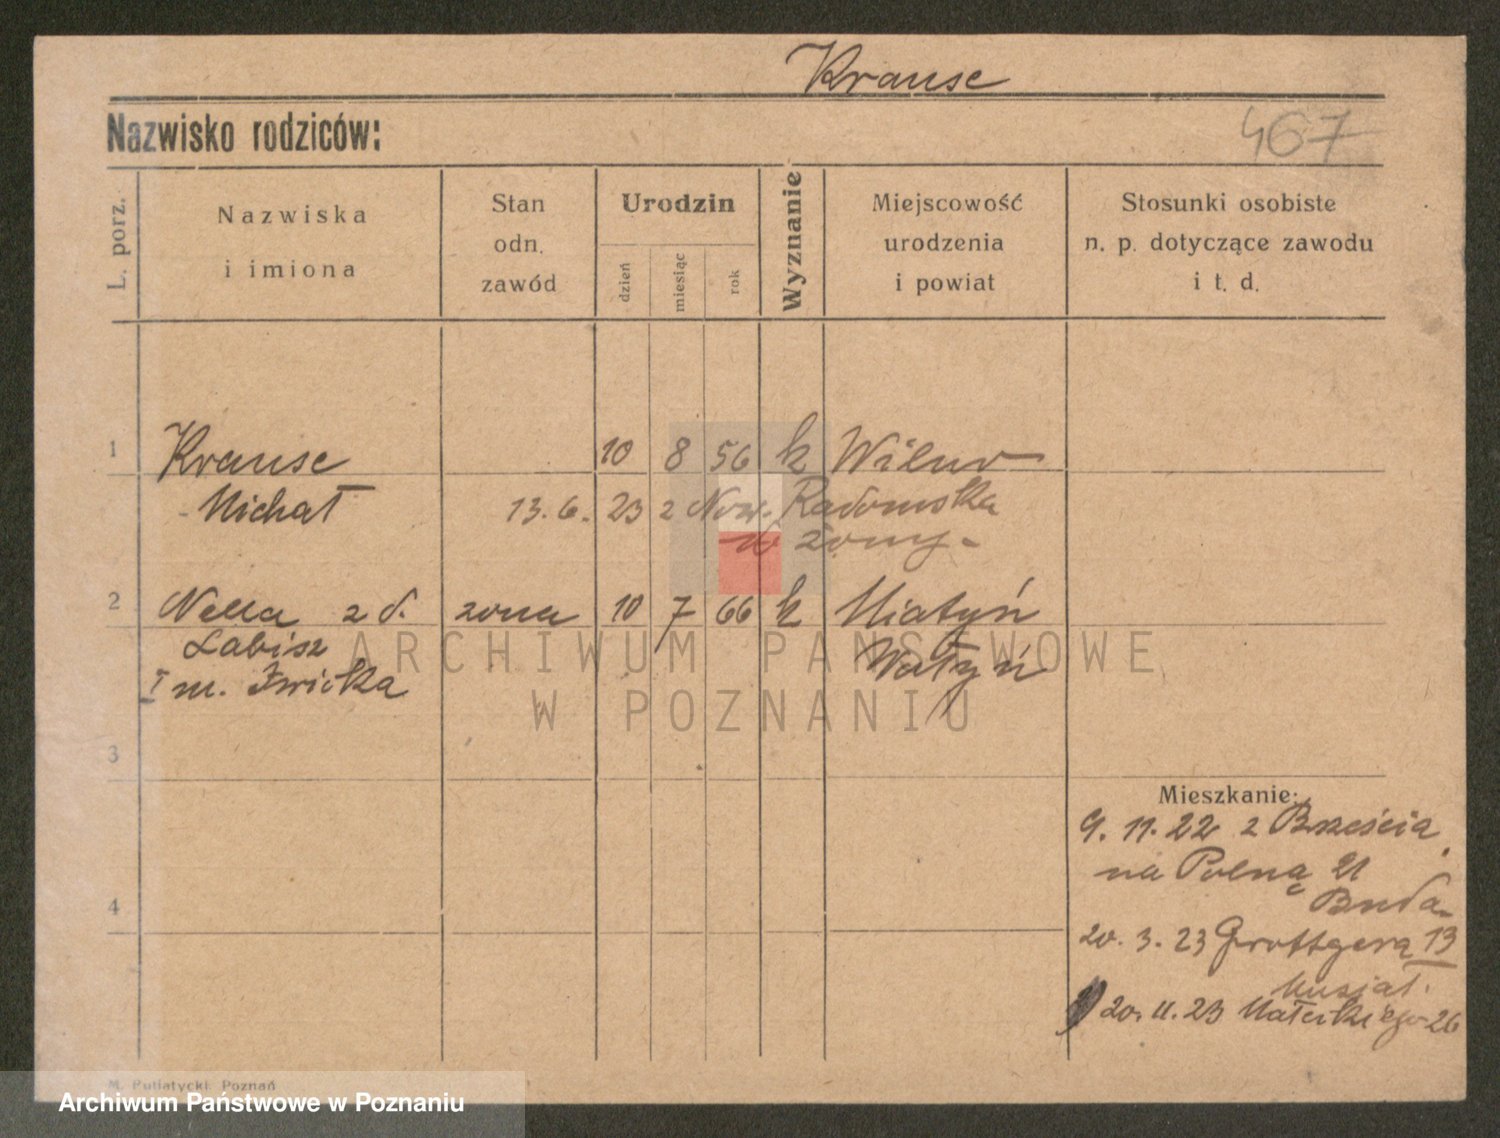 Krause
Nazwisko rodziców:
467
L. porz.
Nazwiska
i imiona
Stan
odn.
zawód
Urodzin
dzień
miesiąc
rok
Wyznanie
Miejscowość
urodzenia
i powiat
Stosunki osobiste
n. p. dotyczące zawodu
i t. d.
1 Krause 10 8 56 k Wilno
Michał 13. 6. 23 z Now. Radomska
do żony
2 Nella z d. żona 10 7 66 k
Labisz
I m.
3
4
Mieszkanie:
9. 11. 22 z Brześcia
na Polną 21
20. 3. 23 Grottgera 13
Musiał.
20. 11. 23 Małeckiego 26
ARCHIWUM PAŃSTWOWE
W POZNANIU
M. Putiatycki, Poznań
Archiwum Państwowe w Poznaniu